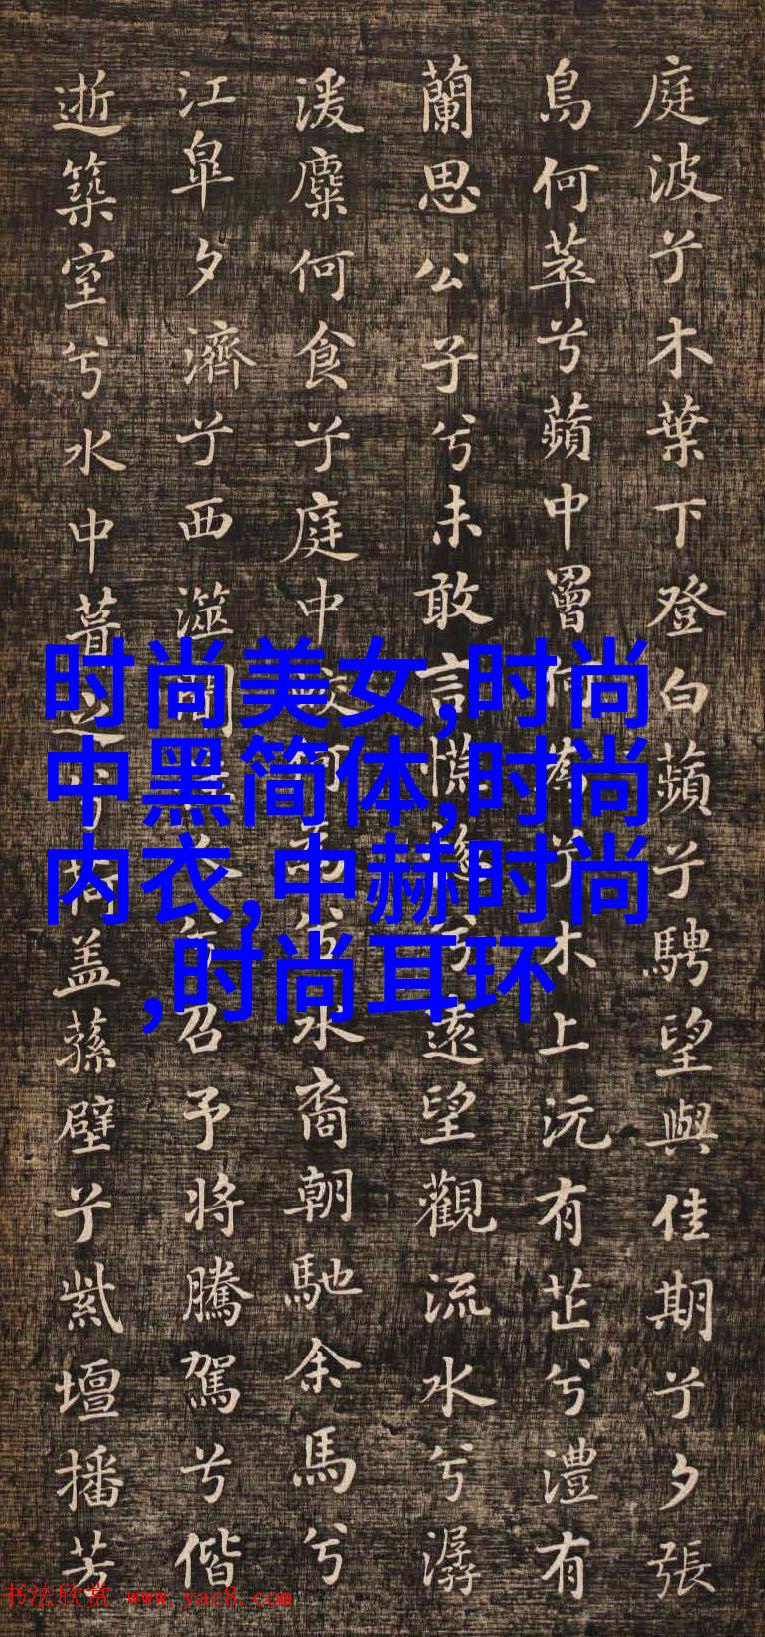 庭波兮木葉下登白蘋兮騁望與佳期兮夕張
鳥何萃兮蘋中罾何為兮木上沅有芷兮澧有
蘭思公子兮未敢言慌兮遠望觀流水兮潺
湲麋何食兮庭中蛟何為兮水裔朝馳余馬兮
江皋夕濟兮西澨聞召予將騰駕兮偕
逝築室兮水中葺之兮荷蓋蓀壁兮紫壇播芳
时尚美女,时尚
中黑简体,时尚
内衣,中赫时尚
,时尚耳环
书法欣赏 www.yac8.com